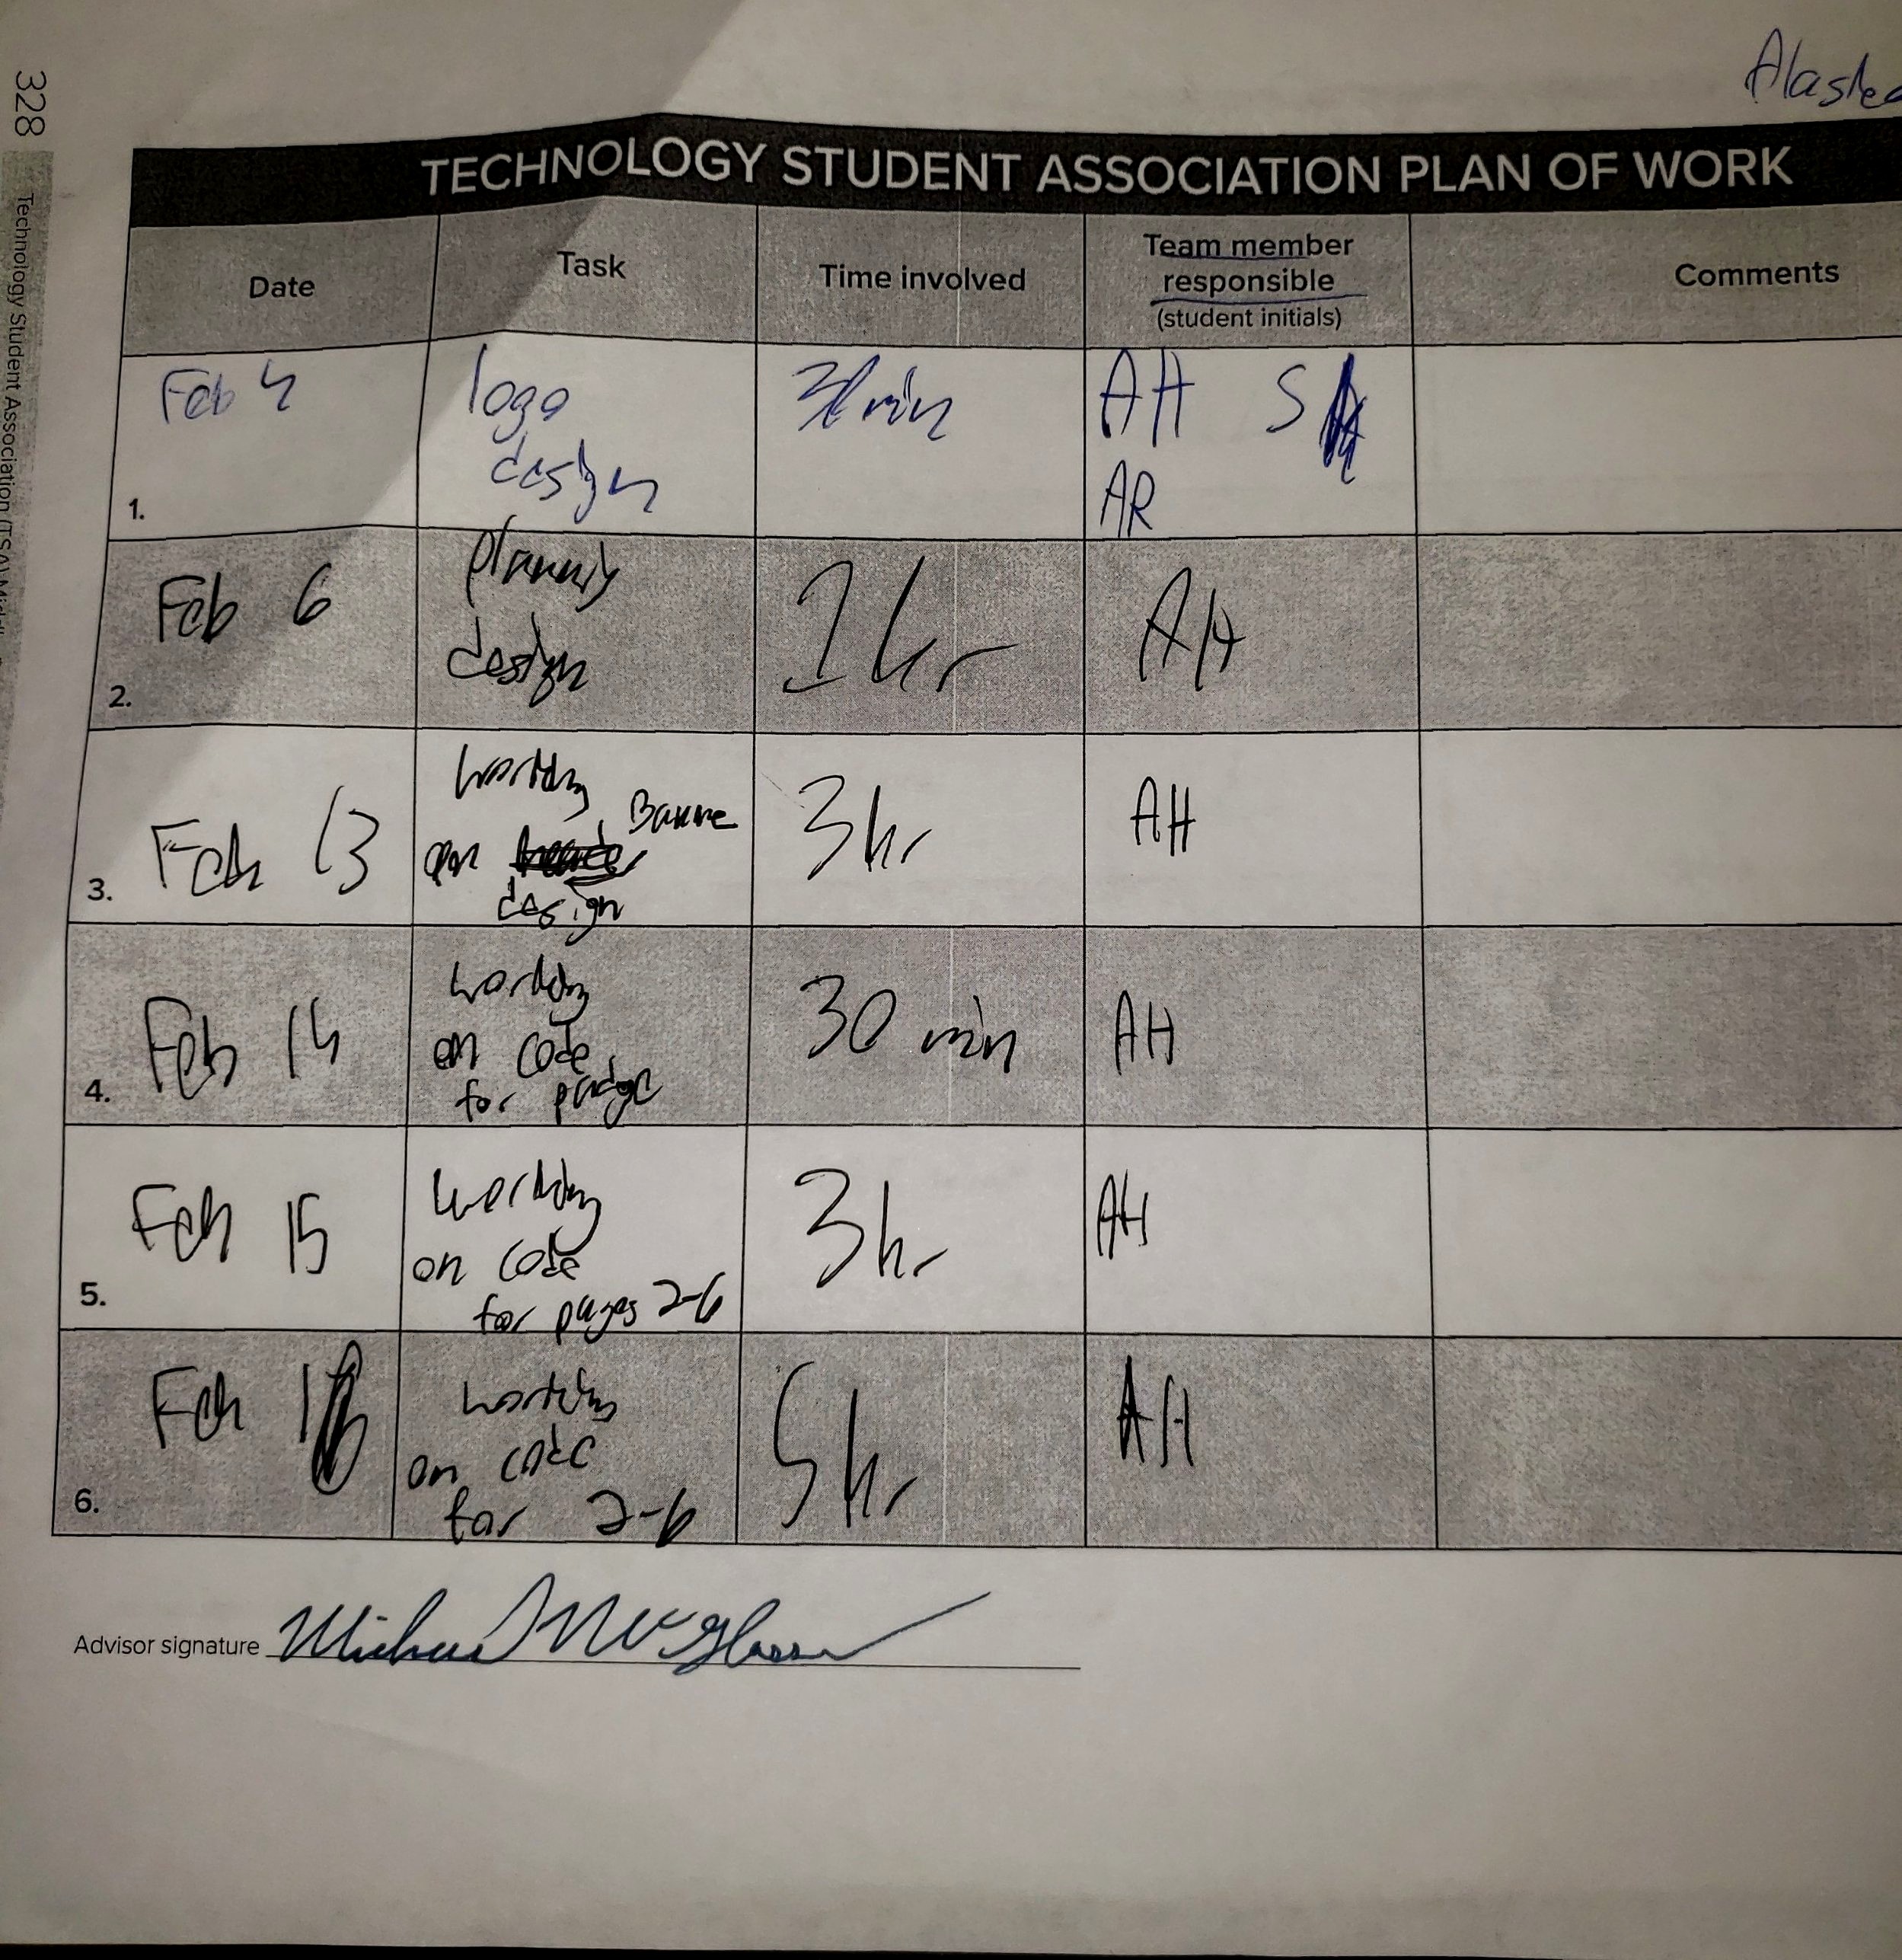 Alaska
328
Technology Student Association (TSA)
TECHNOLOGY STUDENT ASSOCIATION PLAN OF WORK
Date Task Time involved Team member responsible (student initials) Comments
1. Feb 4 logo design min AH S AR
2. Feb 6 planning design 1 hr AH
3. Feb 13 working on design 3 hr AH
4. Feb 14 working on code for 30 min AH
5. Feb 15 working on code for pages 2-6 3 hr AH
6. Feb working on code for 2-6 5 hr AH
Advisor signature Michael